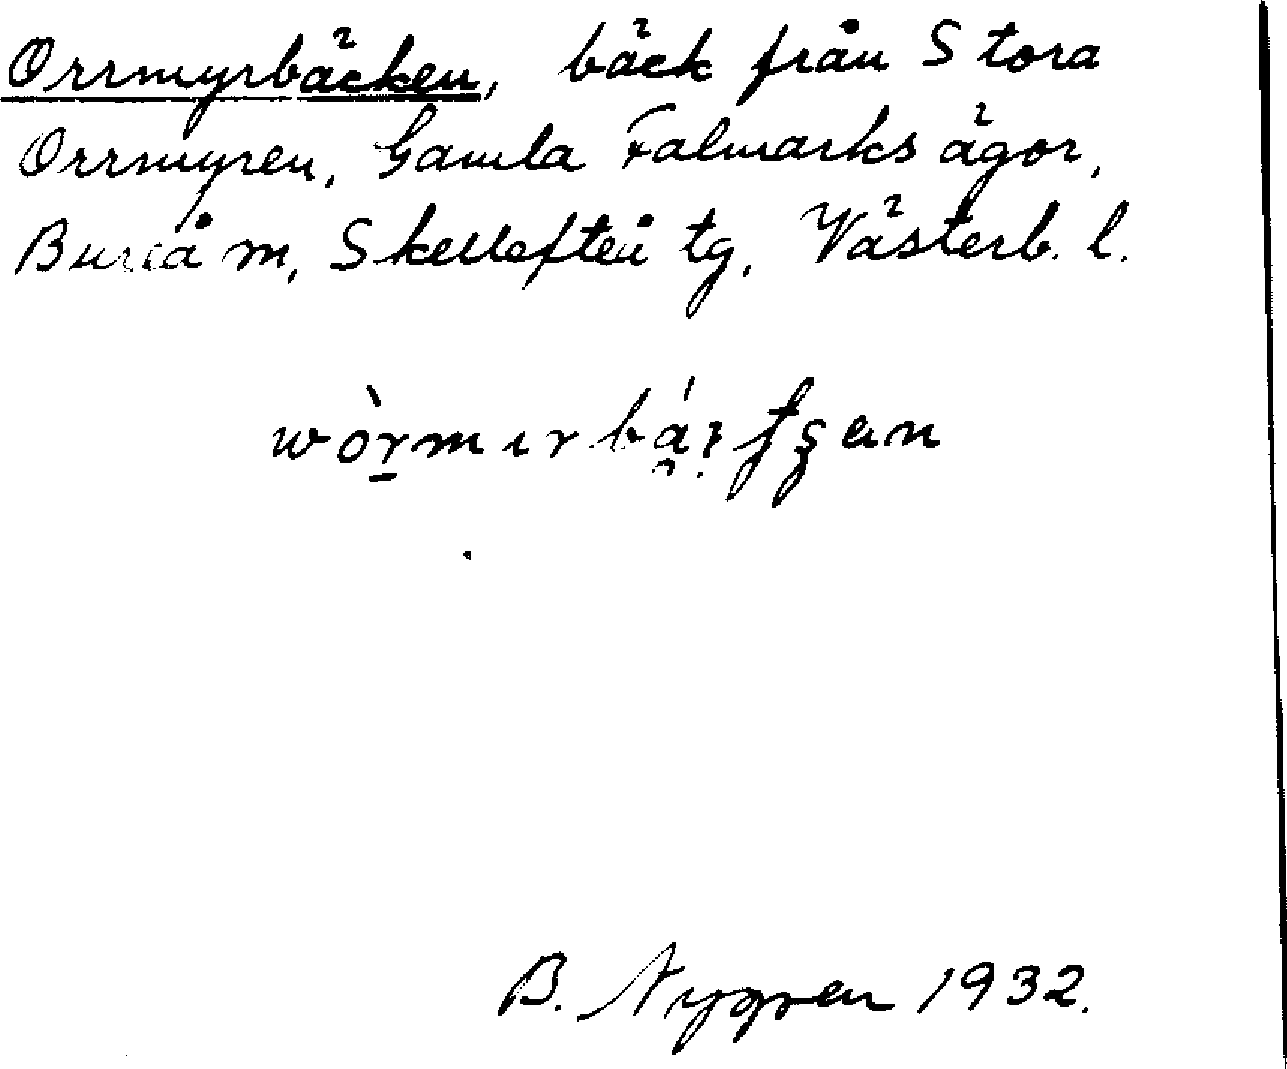 Orrmyrbäcken, bäck från Stora
Orrmyren, Gamla Falmarks ägor,
Bureå m, Skellefteå tg, Västerb. l.
B. Nygren 1932.